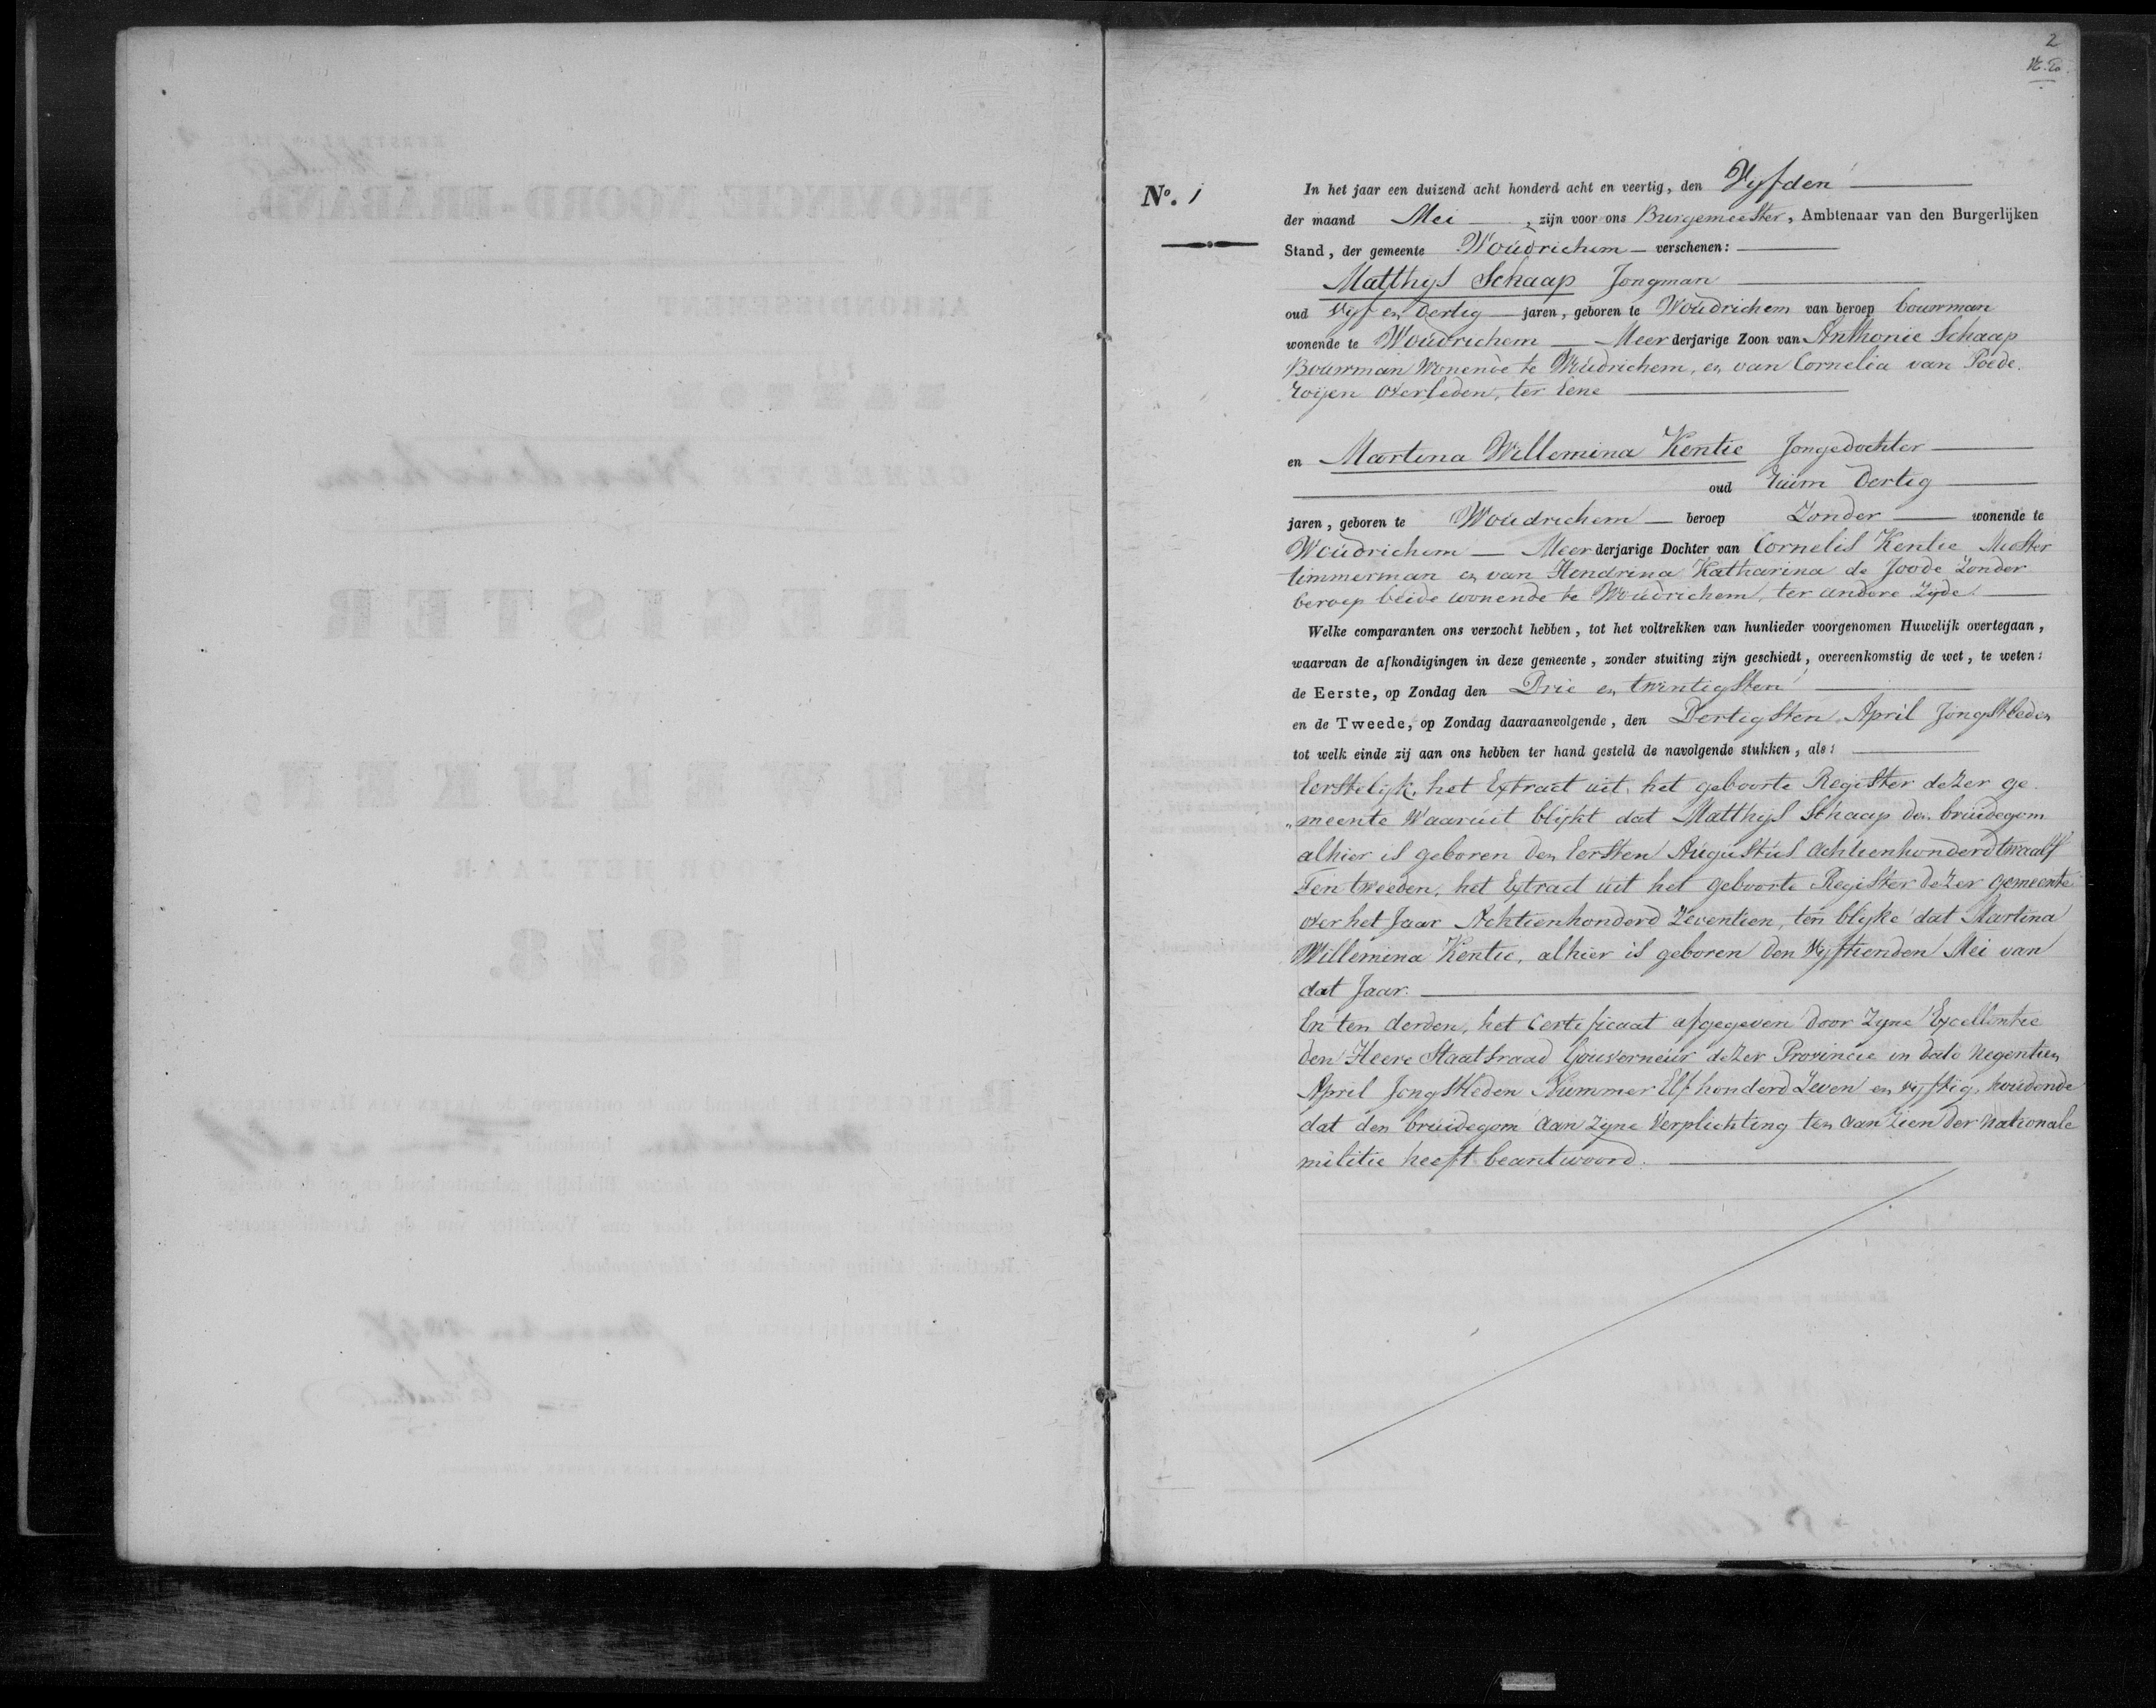 2
No. 1
In het jaar een duizend acht honderd acht en veertig, den Vyfden
der maand Mei, zijn voor ons Burgemeester, Ambtenaar van den Burgerlijken
Stand, der gemeente Woudrichem verschenen:
Matthys Schaap Jongman
oud vyf en dertig jaren, geboren te Woudrichem van beroep bouwman
wonende te Woudrichem Meerderjarige Zoon van Anthonie Schaap
Bouwman Wonende te Woudrichem, en van Cornelia van Poede
roijen overleden, ter Eene
en Martina Willemina Kentie Jongedochter
oud ruim dertig
jaren, geboren te Woudrichem beroep Zonder wonende te
Woudrichem Meerderjarige Dochter van Cornelis Kentie Meester
timmerman en van Hendrina Katharina de Joode Zonder
beroep beide wonende te Woudrichem, ter andere Zyde.
Welke comparanten ons verzocht hebben, tot het voltrekken van hunlieder voorgenomen Huwelijk overtegaan,
waarvan de afkondigingen in deze gemeente, zonder stuiting zijn geschiedt, overeenkomstig de wet, te weten:
de Eerste, op Zondag den Drie en twintigsten
en de Tweede, op Zondag daaraanvolgende, den Dertigsten April Jongstleden
tot welk einde zij aan ons hebben ter hand gesteld de navolgende stukken, als:
Eerstelyk, het Extract uit het geboorte Register dezer ge
meente Waaruit blijkt dat Matthys Schaap den bruidegom
alhier is geboren den Eersten Augustus achtienhonderd twaalf
Ten tweeden, het Extract uit het geboorte Register dezer gemeente
over het Jaar Achtienhonderd Zeventien, ten blyke dat Martina
Willemina Kentie, alhier is geboren den Vyftienden Mei van
dat Jaar.
En ten derden, het Certificaat afgegeven door Zyne Excellentie
den Heere Staatsraad Gouverneur dezer Provincie in dato negentien
April Jongstleden Nummer Elf honderd Zeven en vyftig, houdende
dat den bruidegom aan zyne Verplichting ten aanzien der nationale
militie heeft beantwoord.